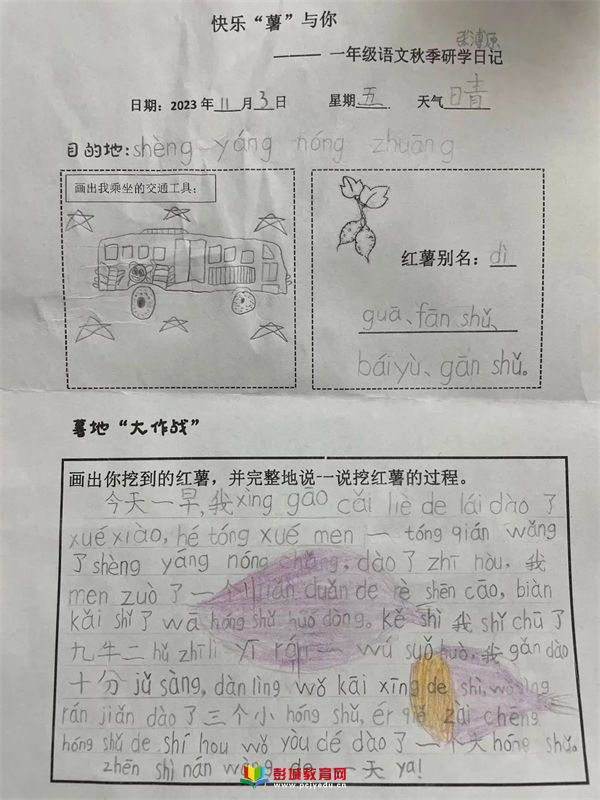 快乐“薯”与你
—— 一年级语文秋季研学日记
日期：2023年11月3日 星期五 天气晴
目的地:shèng yáng nóng zhuāng
画出我乘坐的交通工具：
红薯别名：dì
guā、fān shǔ、
báiyù、gān shǔ。
薯地“大作战”
画出你挖到的红薯，并完整地说一说挖红薯的过程。
今天一早,我xìng gāo cǎi liè de lái dào了
xué xiào, hé tóng xué men 一 tóng qián wǎng
了shèng yáng nóng chǎng, dào了zhī hòu, 我
men zuò了一个小jiǎn duǎn de rè shēn cāo, biàn
kāi shǐ了wā hóng shǔ huó dòng。kě shì 我shǐ chū了
九牛二hǔ zhī lì yī rán 一 wú suǒ huò, 我gǎn dào
十分jǔ sàng, dàn lìng wǒ kāi xīng de shì, wǒ jìng
rán jiǎn dào了三个小hóng shǔ, ér qiě zài chēng
hóng shǔ de shí hou wǒ yòu dé dào了一个大hóng shǔ。
zhēn shì nán wàng de 一天 ya!
彭城教育网
www.pcjyedu.cn